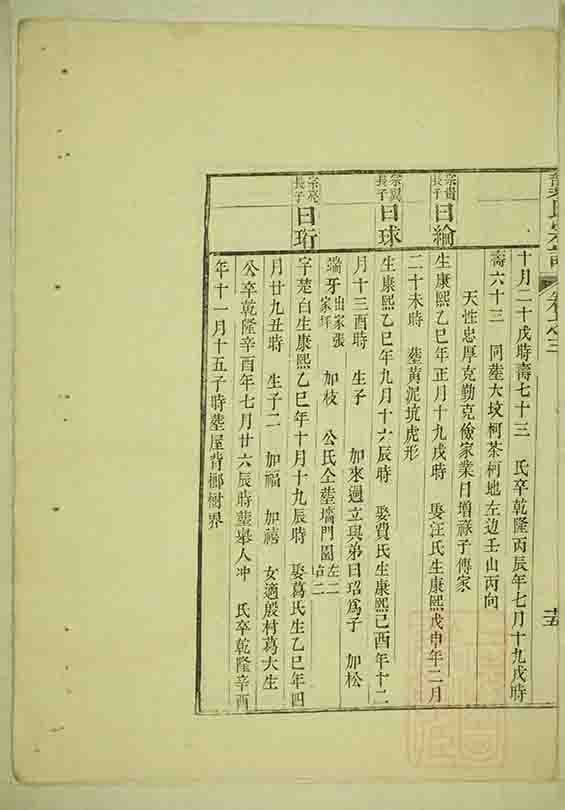 十月二十戌時壽七十三 氏卒乾隆丙辰年七月十九戌時
壽六十三 同塟大坟柯茶柯地左边壬山丙向
天性忠厚克勤克儉家業日增祿子傳家
宗貴長子 日綸
生康熙乙巳年正月十九戌時 娶汪氏生康熙戊申年二月
二十未時 塟黄泥坑虎形
長子 日球
生康熙乙巳年九月十六辰時 娶費氏生康熙己酉年十二
月十三酉時 生子 加來過立與弟日玿爲子 加松
端牙出家張家坪 加枝 公氏仝塟墻門園左二
宗亮長子 日珩
字楚白生康熙乙巳年十月十九辰時 娶葛氏生乙巳年四
月廿九丑時 生子二 加福 加禧 女適殷村葛大生
公卒乾隆辛酉年七月廿六辰時塟舉人冲 氏卒乾隆辛酉
年十一月十五子時塟屋背榔樹界